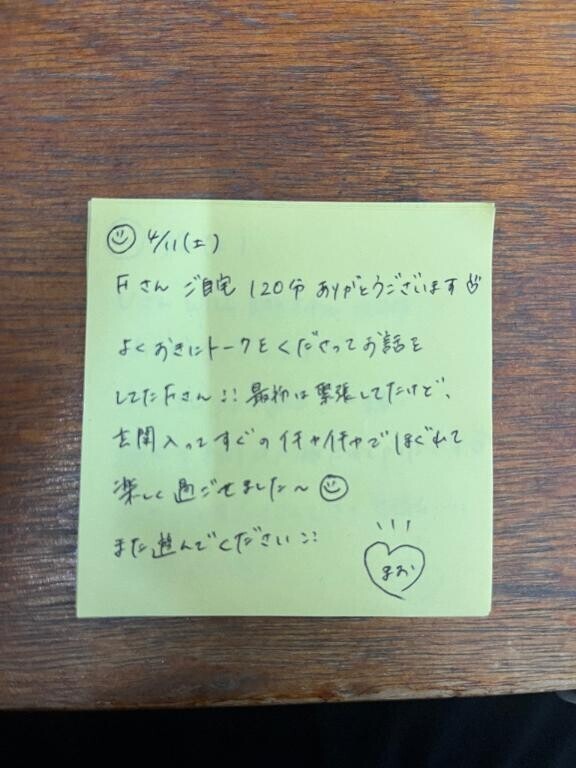 4/11(土)
Fさん ご自宅 120分 ありがとうございます
よくおきにトークをくださってお話を
してたFさん!! 最初は緊張してたけど、
玄関入ってすぐのイチャイチャでほぐれて
楽しく過ごせました〜
また遊んでください!!
まお